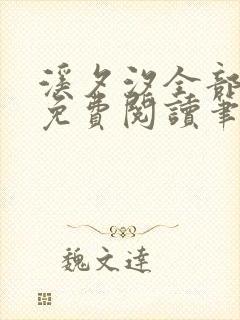 溪夕汐全部
免費閱讀筆
魏文達